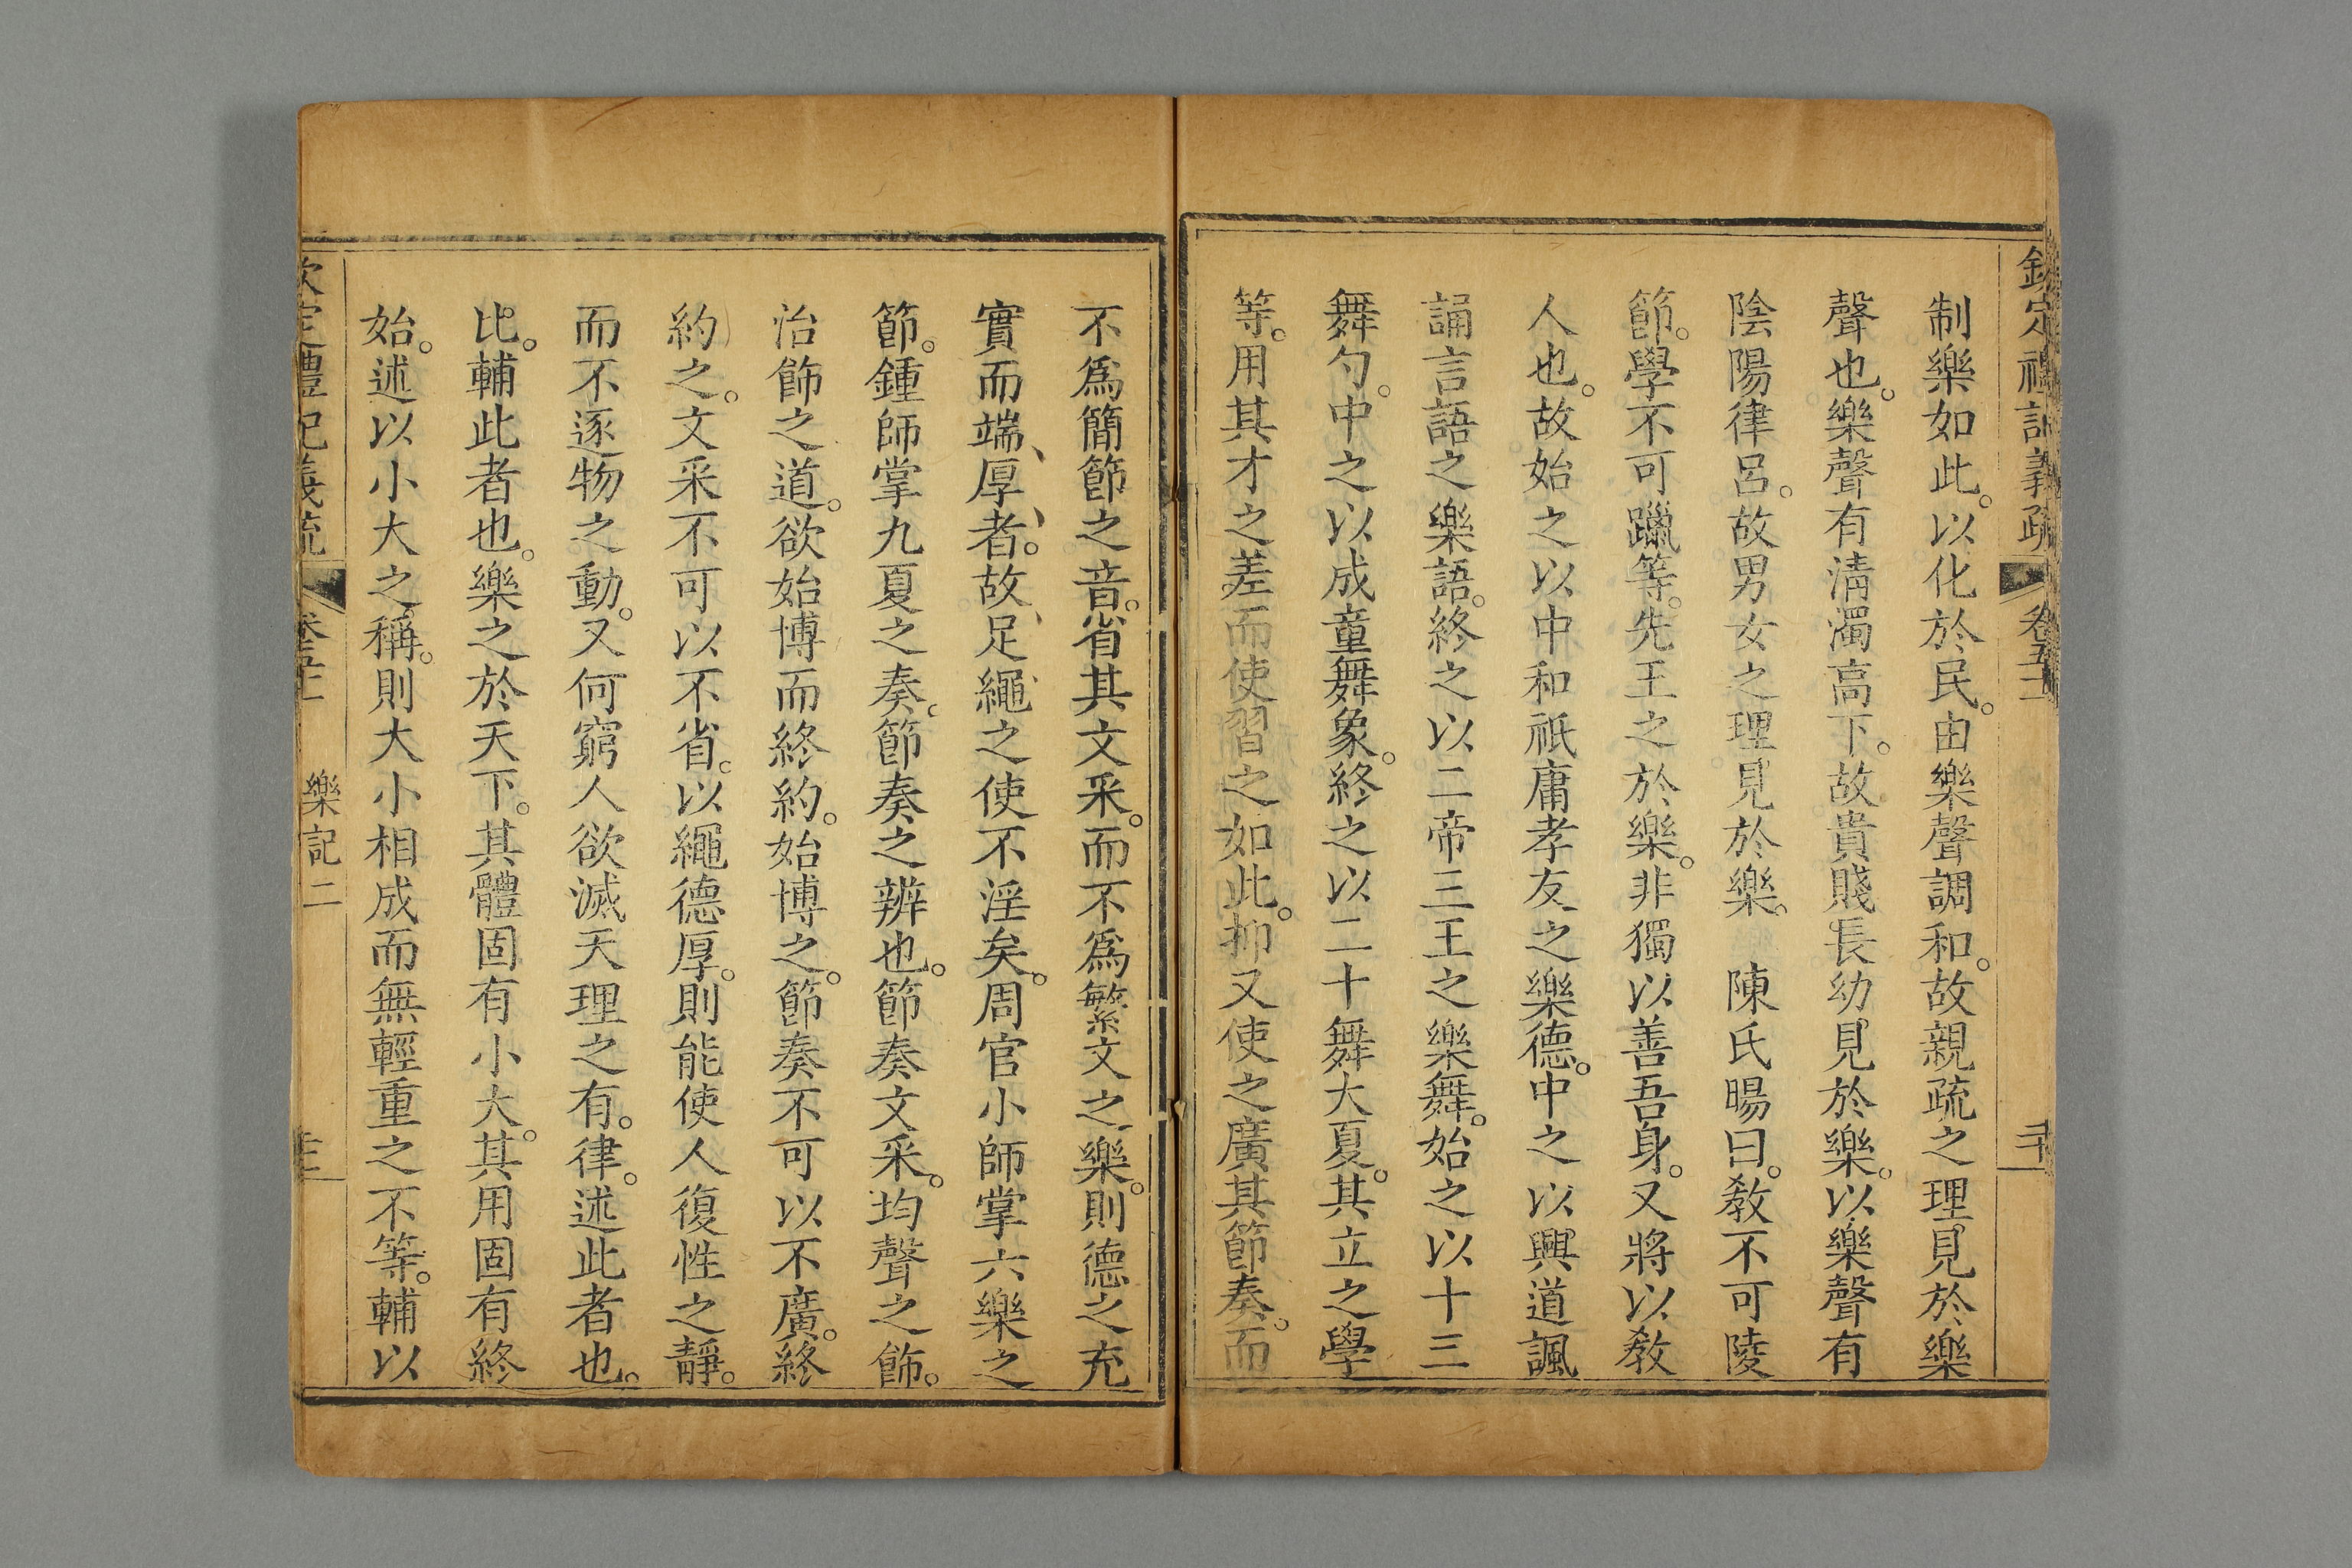 欽定禮記義疏 卷五十一 二十
制樂如此。以化於民。由樂聲調和。故親疏之理。見於樂
聲也。樂聲有淸濁高下。故貴賤長幼見於樂。以樂聲有
陰陽律呂。故男女之理見於樂。 陳氏暘曰。敎不可陵
節。學不可躐等。先王之於樂。非獨以善吾身。又將以敎
人也。故始之以中和祇庸孝友之樂德。中之以興道諷
誦言語之樂語。終之以二帝三王之樂舞。始之以十三
舞勺。中之以成童舞象。終之以二十舞大夏。其立之學
等。用其才之差而使習之如此。抑又使之廣其節奏。而
不爲簡節之音。省其文采。而不爲繁文之樂。則德之充
實而端、厚、者。故、足、繩之使不淫矣。周官小師掌六樂之
節。鍾師掌九夏之奏。節奏之辨也。節奏文采。均聲之飾。
治飾之道。欲始博而終約。始博之。節奏不可以不廣。終
約之。文采不可以不省。以繩德厚。則能使人復性之靜。
而不逐物之動。又何窮人欲滅天理之有。律。述此者也。
比。輔此者也。樂之於天下。其體固有小大。其用固有終
始。述以小大之稱。則大小相成而無輕重之不等。輔以
欽定禮記義疏 樂記二